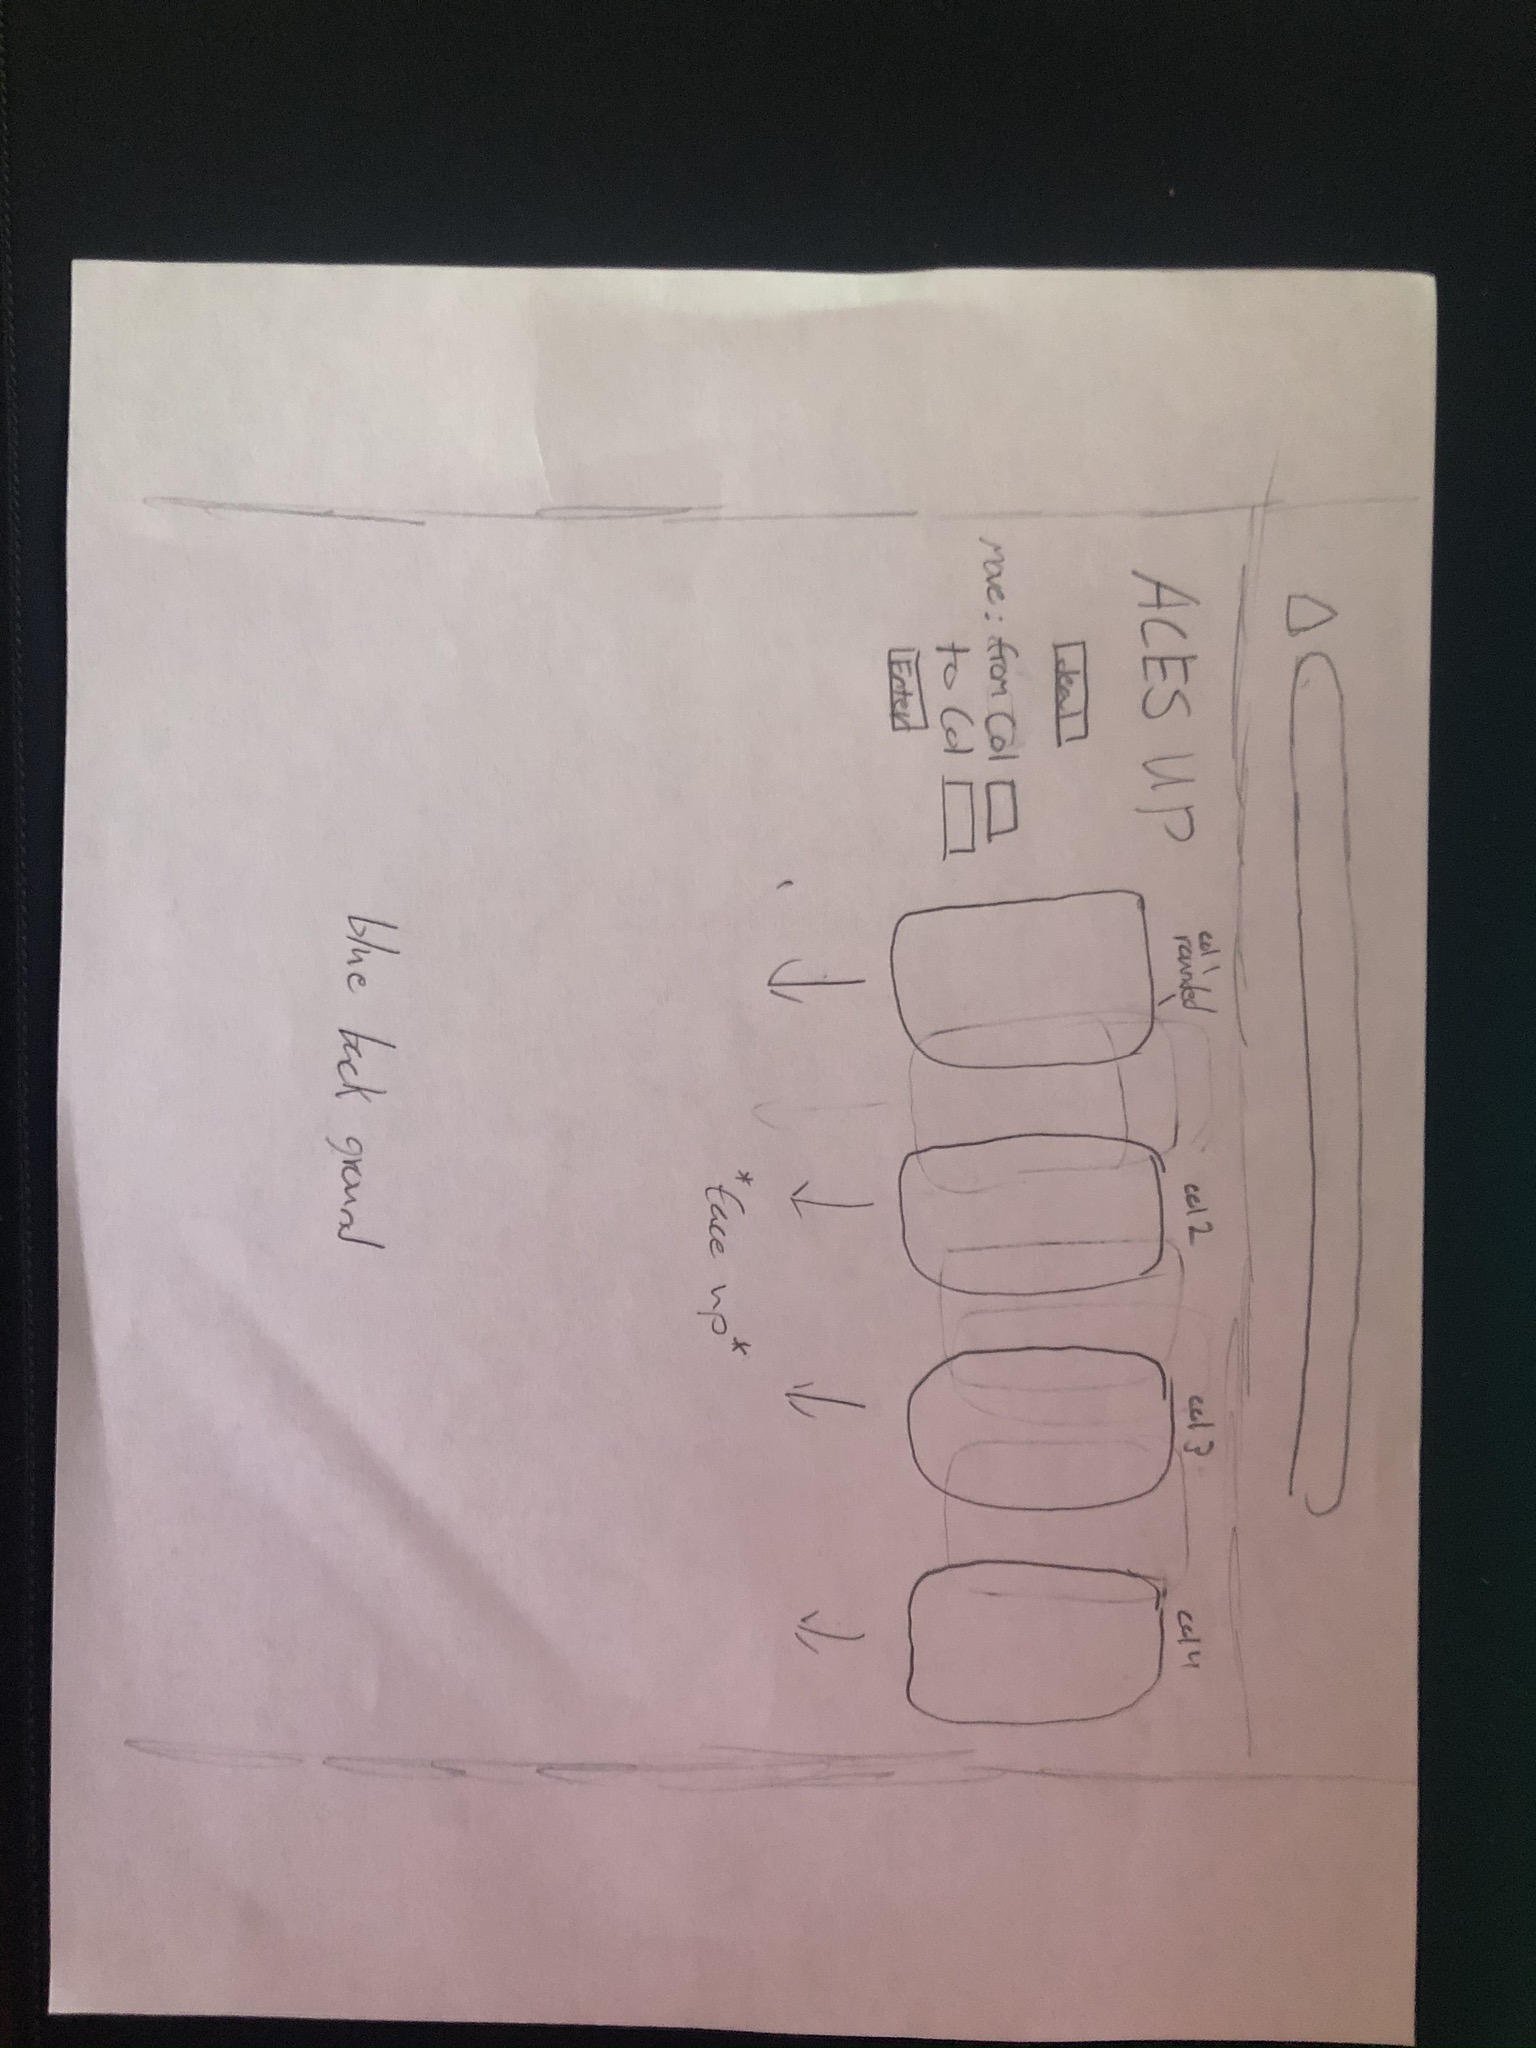 ACES UP
deal
move: from Col
to Col
Enter
col 1
rounded
col 2
col 3
col 4
*face up*
blue back ground